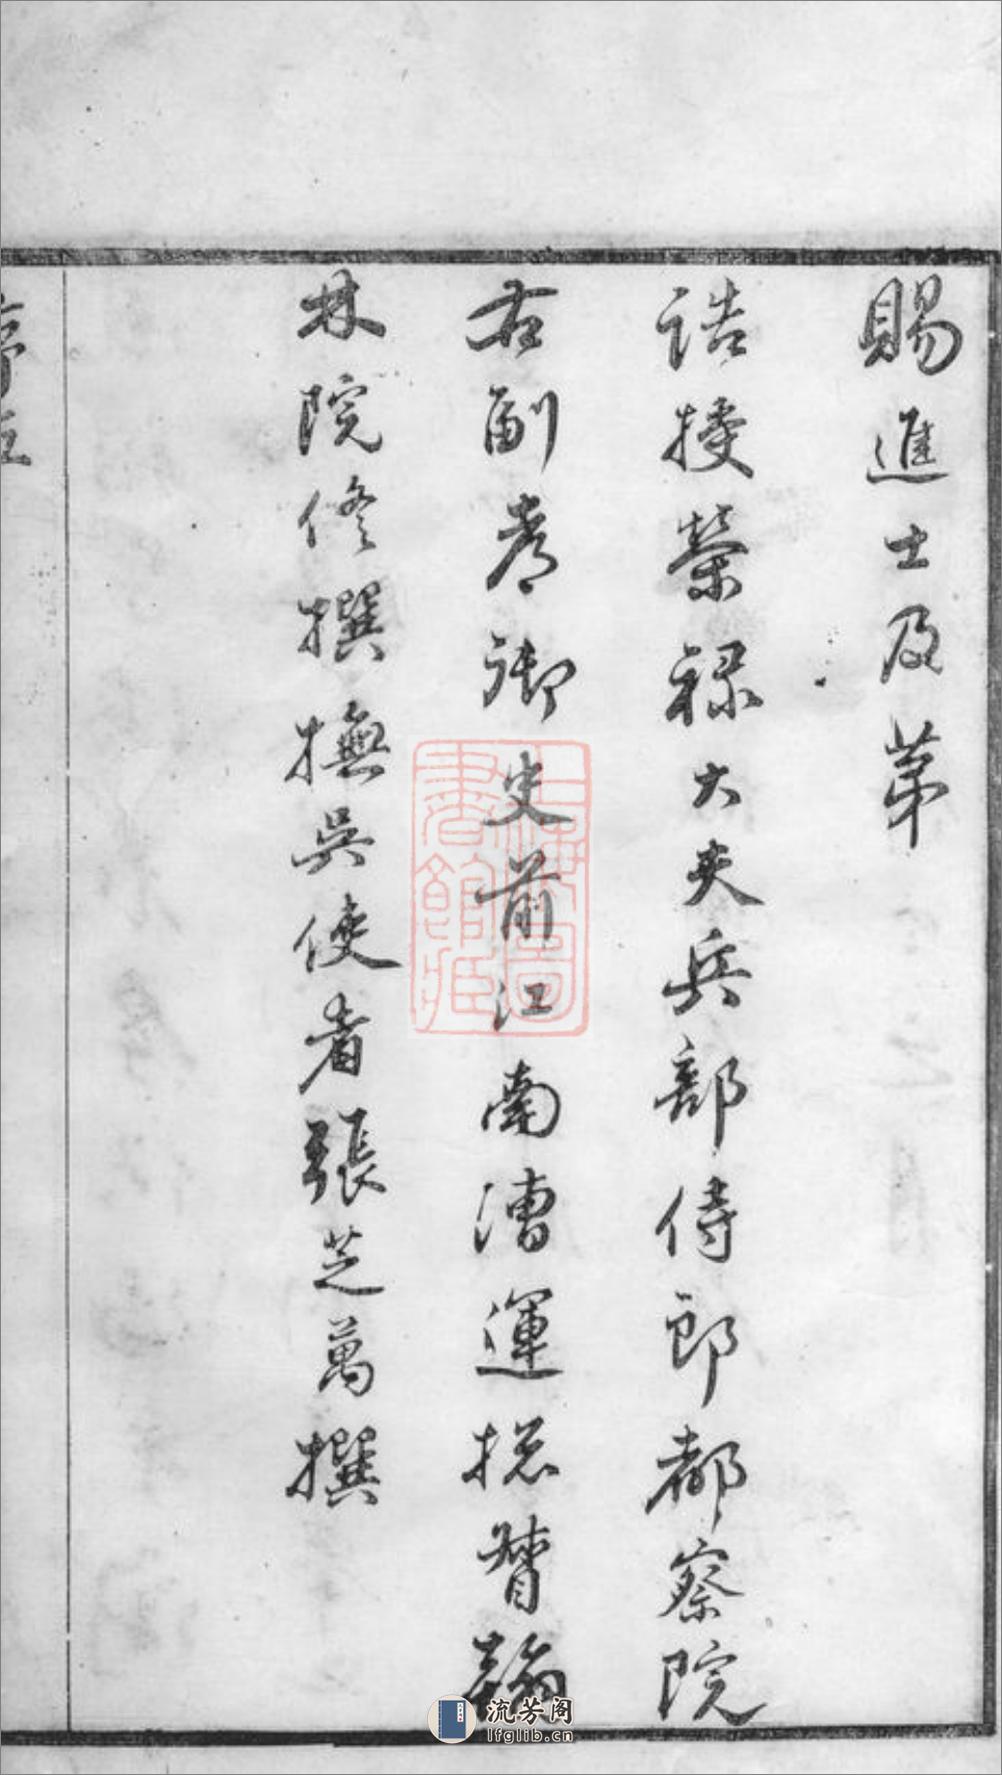 賜進士及苐
誥授榮祿大夫兵部侍郎都察院
右副都御史前江南漕運捴督翰
林院修撰撫吳使者張芝萬撰
上海圖書館藏
流芳阁
lfglib.cn